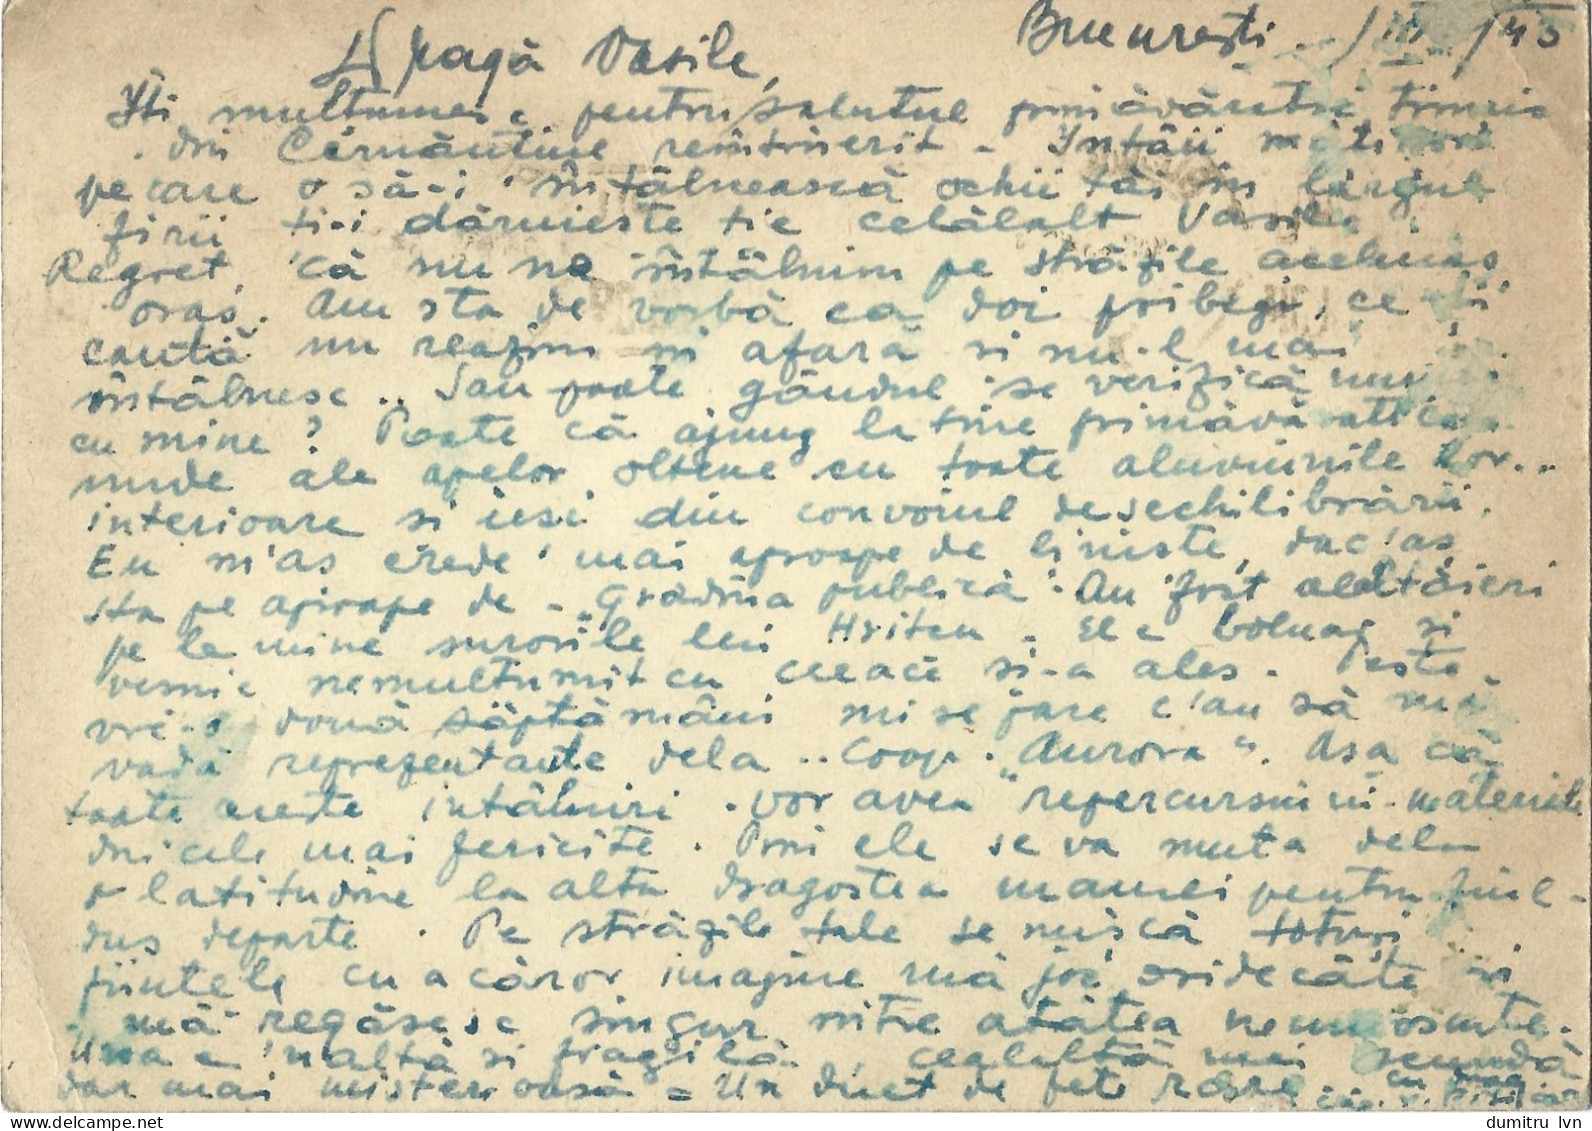 București /III/45
Dragă Vasile,
Iți multumesc pentru salutul primăvăratic trimis
din Cernăutiul reintinerit - Intâii
pe care o să-i întâlnească ochii tăi în largul
firii ti-i dăruieste tie celălalt Vasile
Regret, că nu ne întâlnim pe străzile aceluias
oras. Am sta de vorbă ca doi pribegi, ce-si
caută un reazim in afară si nu-l mai
intâlnesc .. Sau poate gândul se verifică numai
cu mine? Poate că ajung la tine primăvăratticele
unde ale apelor oltene cu toate aluviunile lor..
interioare si iesi din convoiul desechilibrării.
Eu m'as crede mai aproape de liniste, dac'as
sta pe aproape de - „Gradina publică". Au fost alaltăieri
pe la mine surorile lui Hritcu - El e bolnav si
vesnic nemultumit cu ceeace si-a ales. Peste
vre-o două săptămâni mi se pare c'au să mă
vadă reprezentante dela .. Coop. „Aurora". Asa că
toate aceste intâlniri vor avea repercursiuni materiale
din cele mai fericite. Prin ele se va muta dela
o latitudine la alta dragostea mamei pentru fiul-
dus departe. Pe străzile tale se mișcă totuși
fiintele cu a căror imagine mă joc oridecâte ori
mă regăsesc singur intre atâtea necunoscute.
Una e inaltă si fragilă, cealaltă mai scundă
dar mai misterioasă = Un duet de fete rare